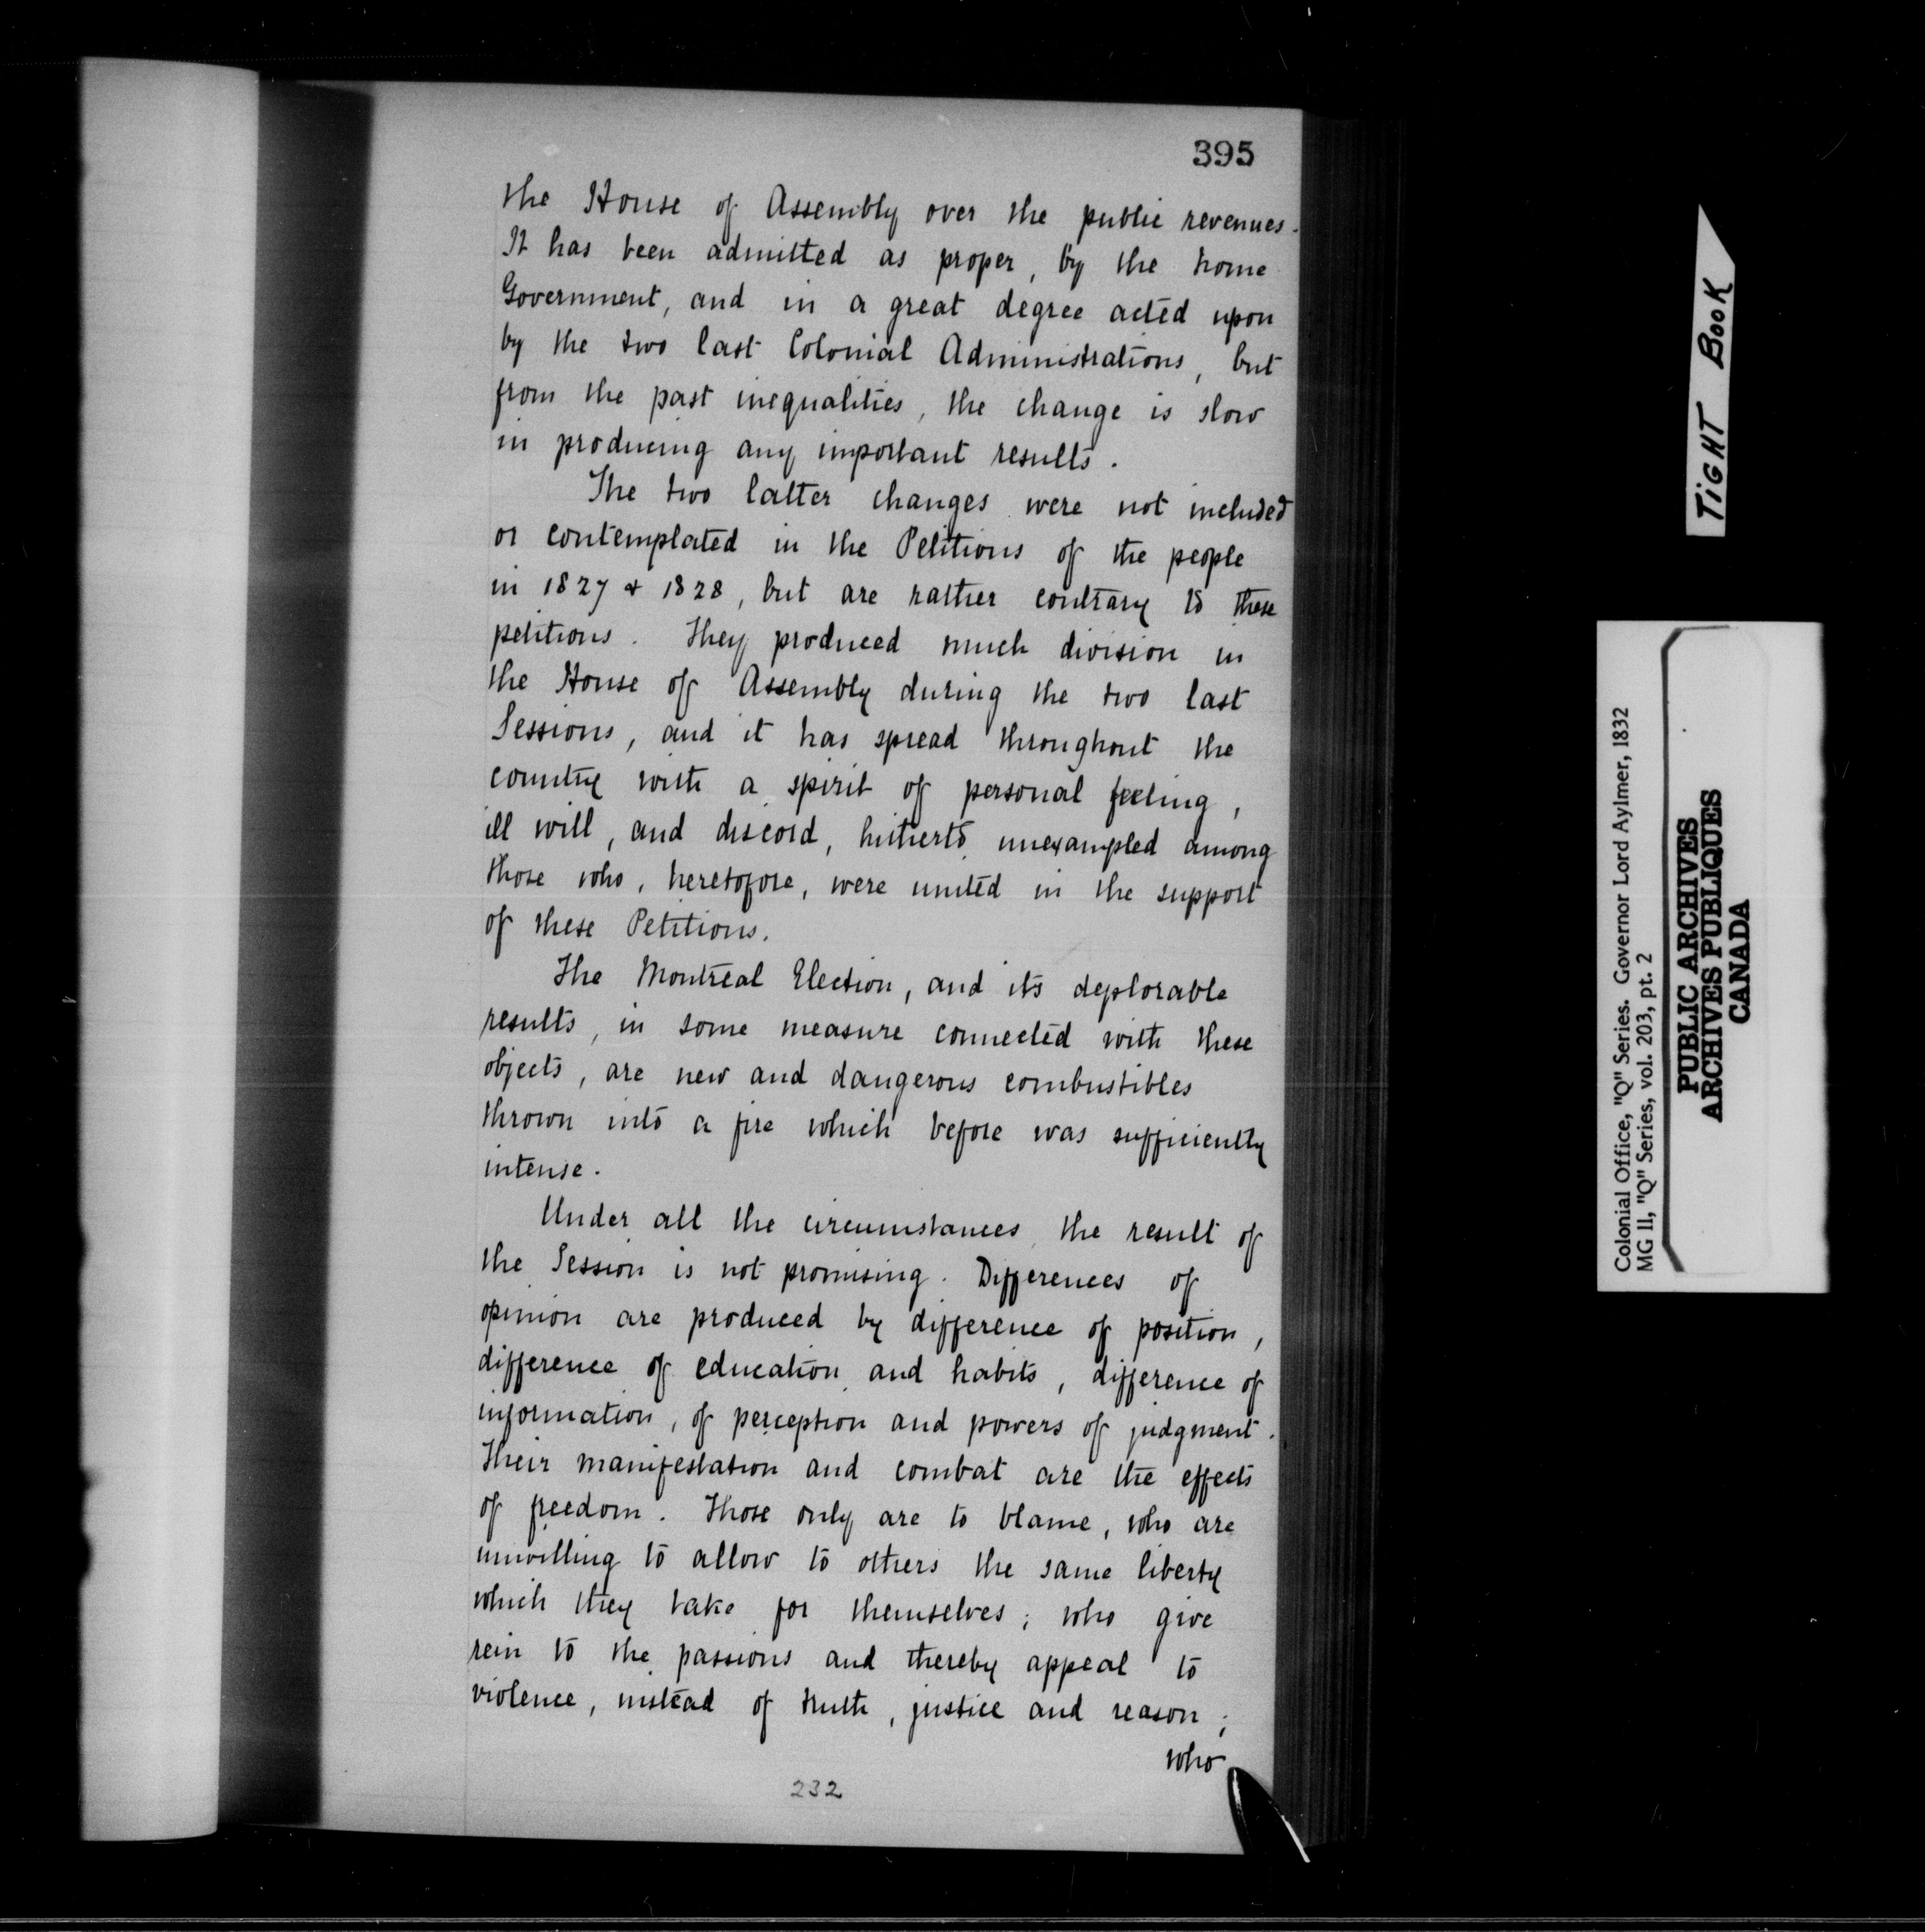 395
the House of Assembly over the public revenues.
It has been admitted as proper, by the home
Government, and in a great degree acted upon
by the two last Colonial Administrations, but
from the past inequalities, the change is slow
in producing any important results.
The two latter changes were not included
or contemplated in the Petitions of the people
in 1827 & 1828, but are rather contrary to these
petitions. They produced much division in
the House of Assembly during the two last
Sessions, and it has spread throughout the
country with a spirit of personal feeling,
ill will, and discord, hitherto unexampled among
those who, heretofore, were united in the support
of these Petitions.
The Montreal Election, and its deplorable
results, in some measure connected with these
objects, are new and dangerous combustibles
thrown into a fire which before was sufficiently
intense.
Under all the circumstances the result of
the Session is not promising. Differences of
opinion are produced by difference of position,
difference of education and habits, difference of
information, of perception and powers of judgment.
Their manifestation and combat are the effects
of freedom. Those only are to blame, who are
unwilling to allow to others the same liberty
which they take for themselves; who give
rein to the passions and thereby appeal to
violence, instead of truth, justice and reason;
who
232
TIGHT BOOK
Colonial Office, "Q" Series. Governor Lord Aylmer, 1832
MG 11, "Q" Series, vol. 203, pt. 2
PUBLIC ARCHIVES
ARCHIVES PUBLIQUES
CANADA